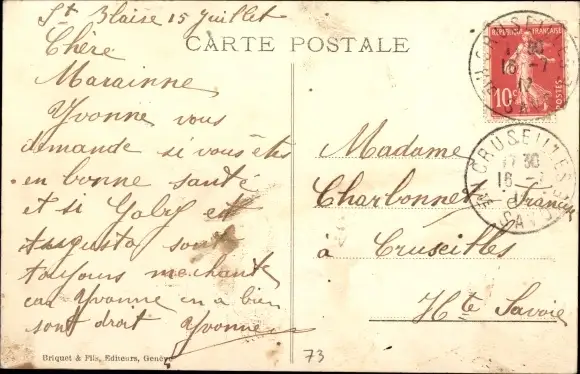 St Blaise 15 juillet
CARTE POSTALE
Chère
Marainne
Yvonne vous
demande si vous êtes
en bonne santé
et si Gaby est
Augusta sont
toujours mechante
car Yvonne en a bien
sont droit Yvonne
Briquet & Fils, Editeurs, Genève
REPUBLIQUE FRANÇAISE
10c
POSTES
CRUSEILLES
16 -7
CRUSEILLES
17 30
16 -7
SAVOIE
Madame
Charbonnet Francis
à Cruseilles
Hte Savoie
73